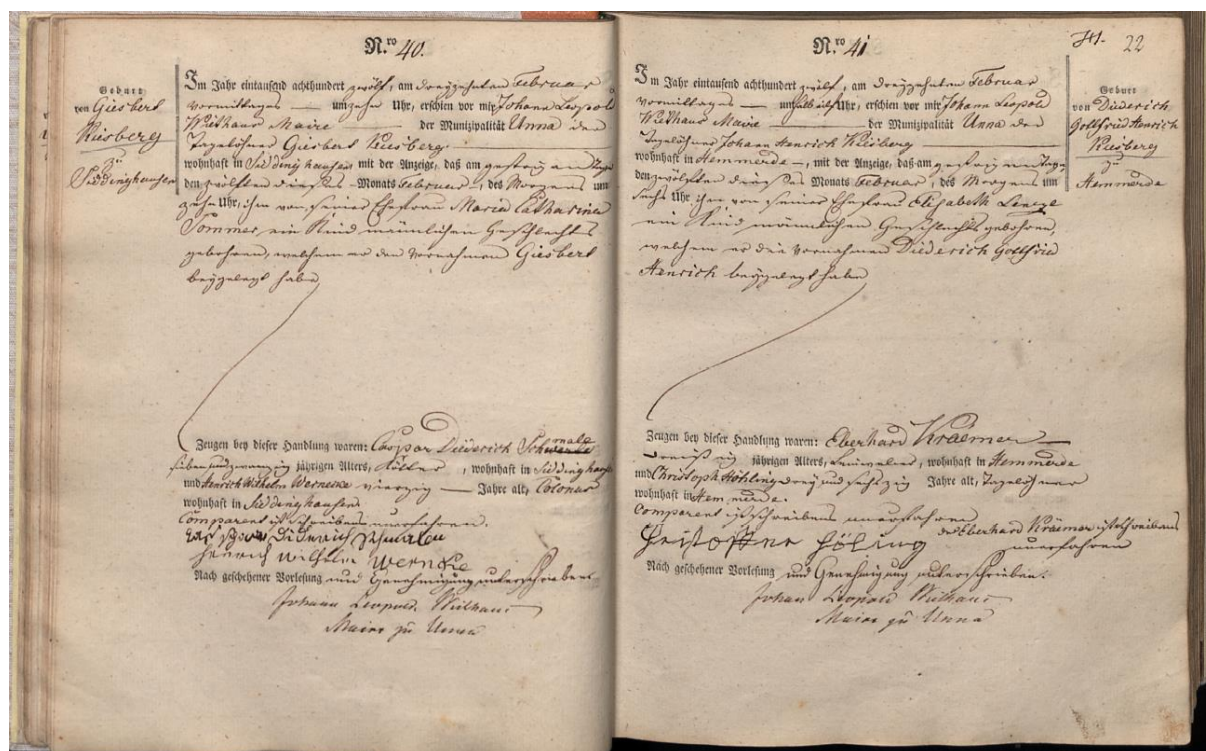 N.ro 40.
Geburt
von Giesbert
Kiesberg
zu
Siddinghausen
Im Jahr eintausend achthundert zwölf, am dreyzehnten Februar
vormittages — um zehn Uhr, erschien vor mir Johann Leopold
Wiethaus Maire — der Munizipalität Unna der
Tagelöhner Giesbert Kiesberg. —
wohnhaft in Siddinghausen mit der Anzeige, daß am gestrigen Tage
den zwölften dieses Monats Februar, des Morgens um
zehn Uhr, ihm von seiner Ehefrau Maria Catharina
Sommer, ein Kind männlichen Geschlechtes
gebohren, welchem er den Vornahmen Giesbert
beygelegt habe
Zeugen bey dieser Handlung waren: Caspar Diederich Schmale
siebenundzwanzig jährigen Alters, , wohnhaft in Siddinghausen
und Henrich Wilhelm Wernecke vierzig — Jahre alt, Colonus
wohnhaft in Siddinghausen
Comparent ist schreibens unerfahren.
Diderich Schmalen
Henrich Wilhelm Wernecke
Nach geschehener Vorlesung und Genehmigung unterschrieben
Johann Leopold Wiethaus
Maire zu Unna
N.ro 41
22
Geburt
von Diederich
Gottfried Henrich
Kiesberg
zu
Hemmerde
Im Jahr eintausend achthundert zwölf, am dreyzehnten Februar
vormittages — um halb eilf Uhr, erschien vor mir Johann Leopold
Wiethaus Maire — der Munizipalität Unna der
Tagelöhner Johann Henrich Kiesberg —
wohnhaft in Hemmerde —, mit der Anzeige, daß am gestrigen Tage,
den zwölften dieses Monats Februar, des Morgens um
sechs Uhr ihm von seiner Ehefrau Elisabeth
ein Kind männlichen Geschlechts gebohren,
welchem er den Vornahmen Diederich Gottfried
Henrich beygelegt habe
Zeugen bey dieser Handlung waren: Eberhard Kraemer —
dreißig jährigen Alters, Leinweber, wohnhaft in Hemmerde
und Christoph Höhling drey und sechszig Jahre alt, Tagelöhner
wohnhaft in Hemmerde.
Comparent ist schreibens unerfahren
der Eberhard Kräemer ist schreibens
unerfahren
Christoffer Höling
Nach geschehener Vorlesung und Genehmigung unterschrieben.
Johan Leopold Wiethaus
Maire zu Unna